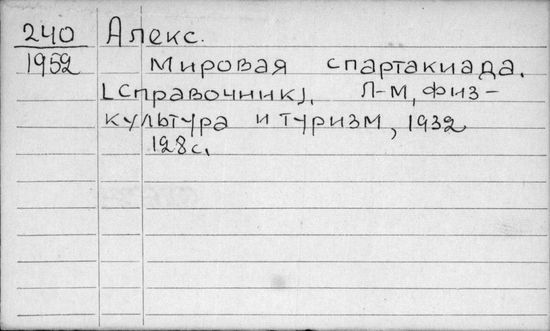 240 Алекс.
1952 Мировая спартакиада.
[Справочник]. Л-М, физ-
культура и туризм, 1932
128 с.